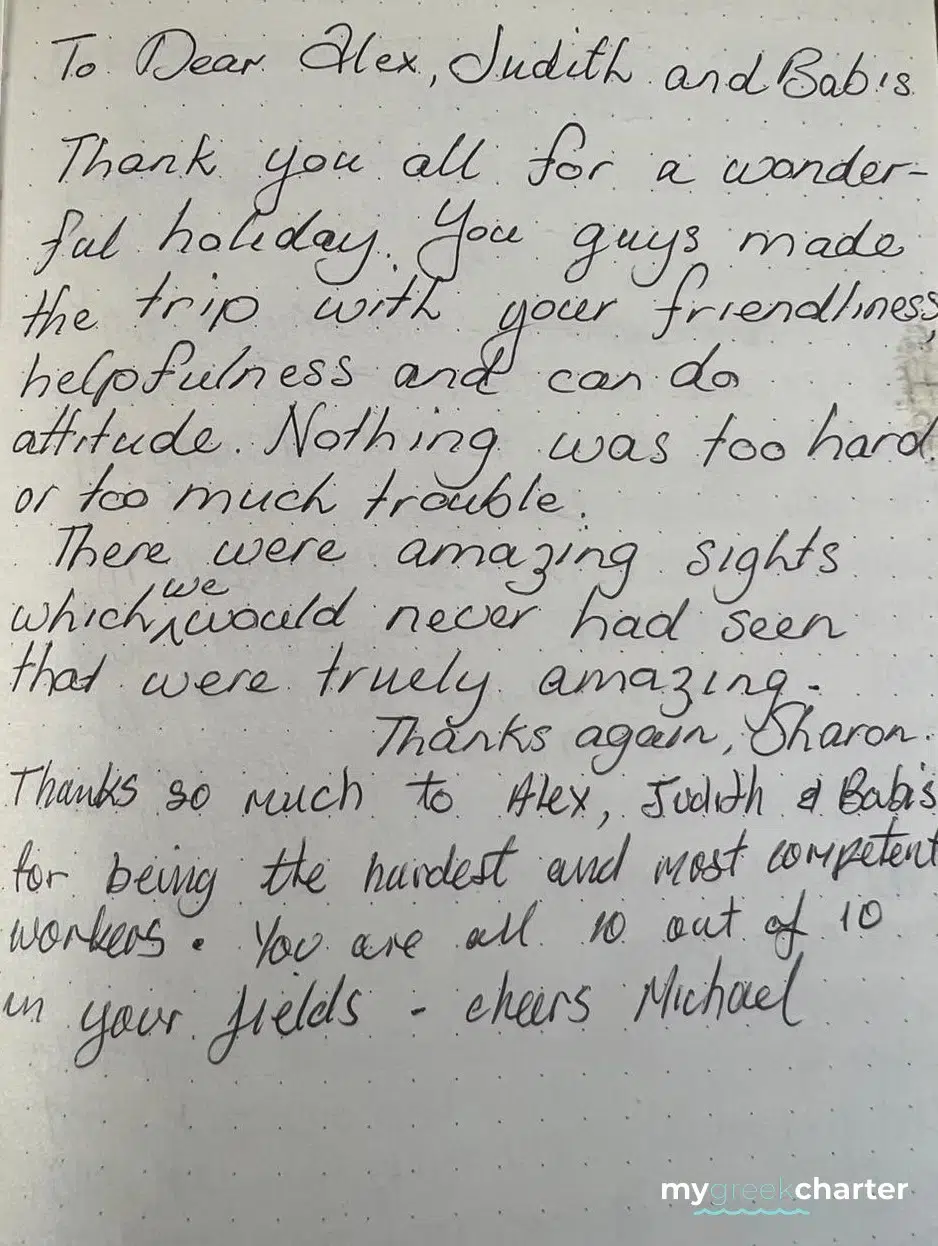 To Dear Alex, Judith and Babis.
Thank you all for a wonder-
ful holiday. You guys made
the trip with your friendliness,
helpfulness and can do
attitude. Nothing was too hard
or too much trouble.
There were amazing sights
which ^we would never had seen
that were truely amazing.
Thanks again, Sharon.
Thanks so much to Alex, Judith & Babis
for being the hardest and most competent
workers. You are all 10 out of 10
in your fields - cheers Michael
mygreekcharter